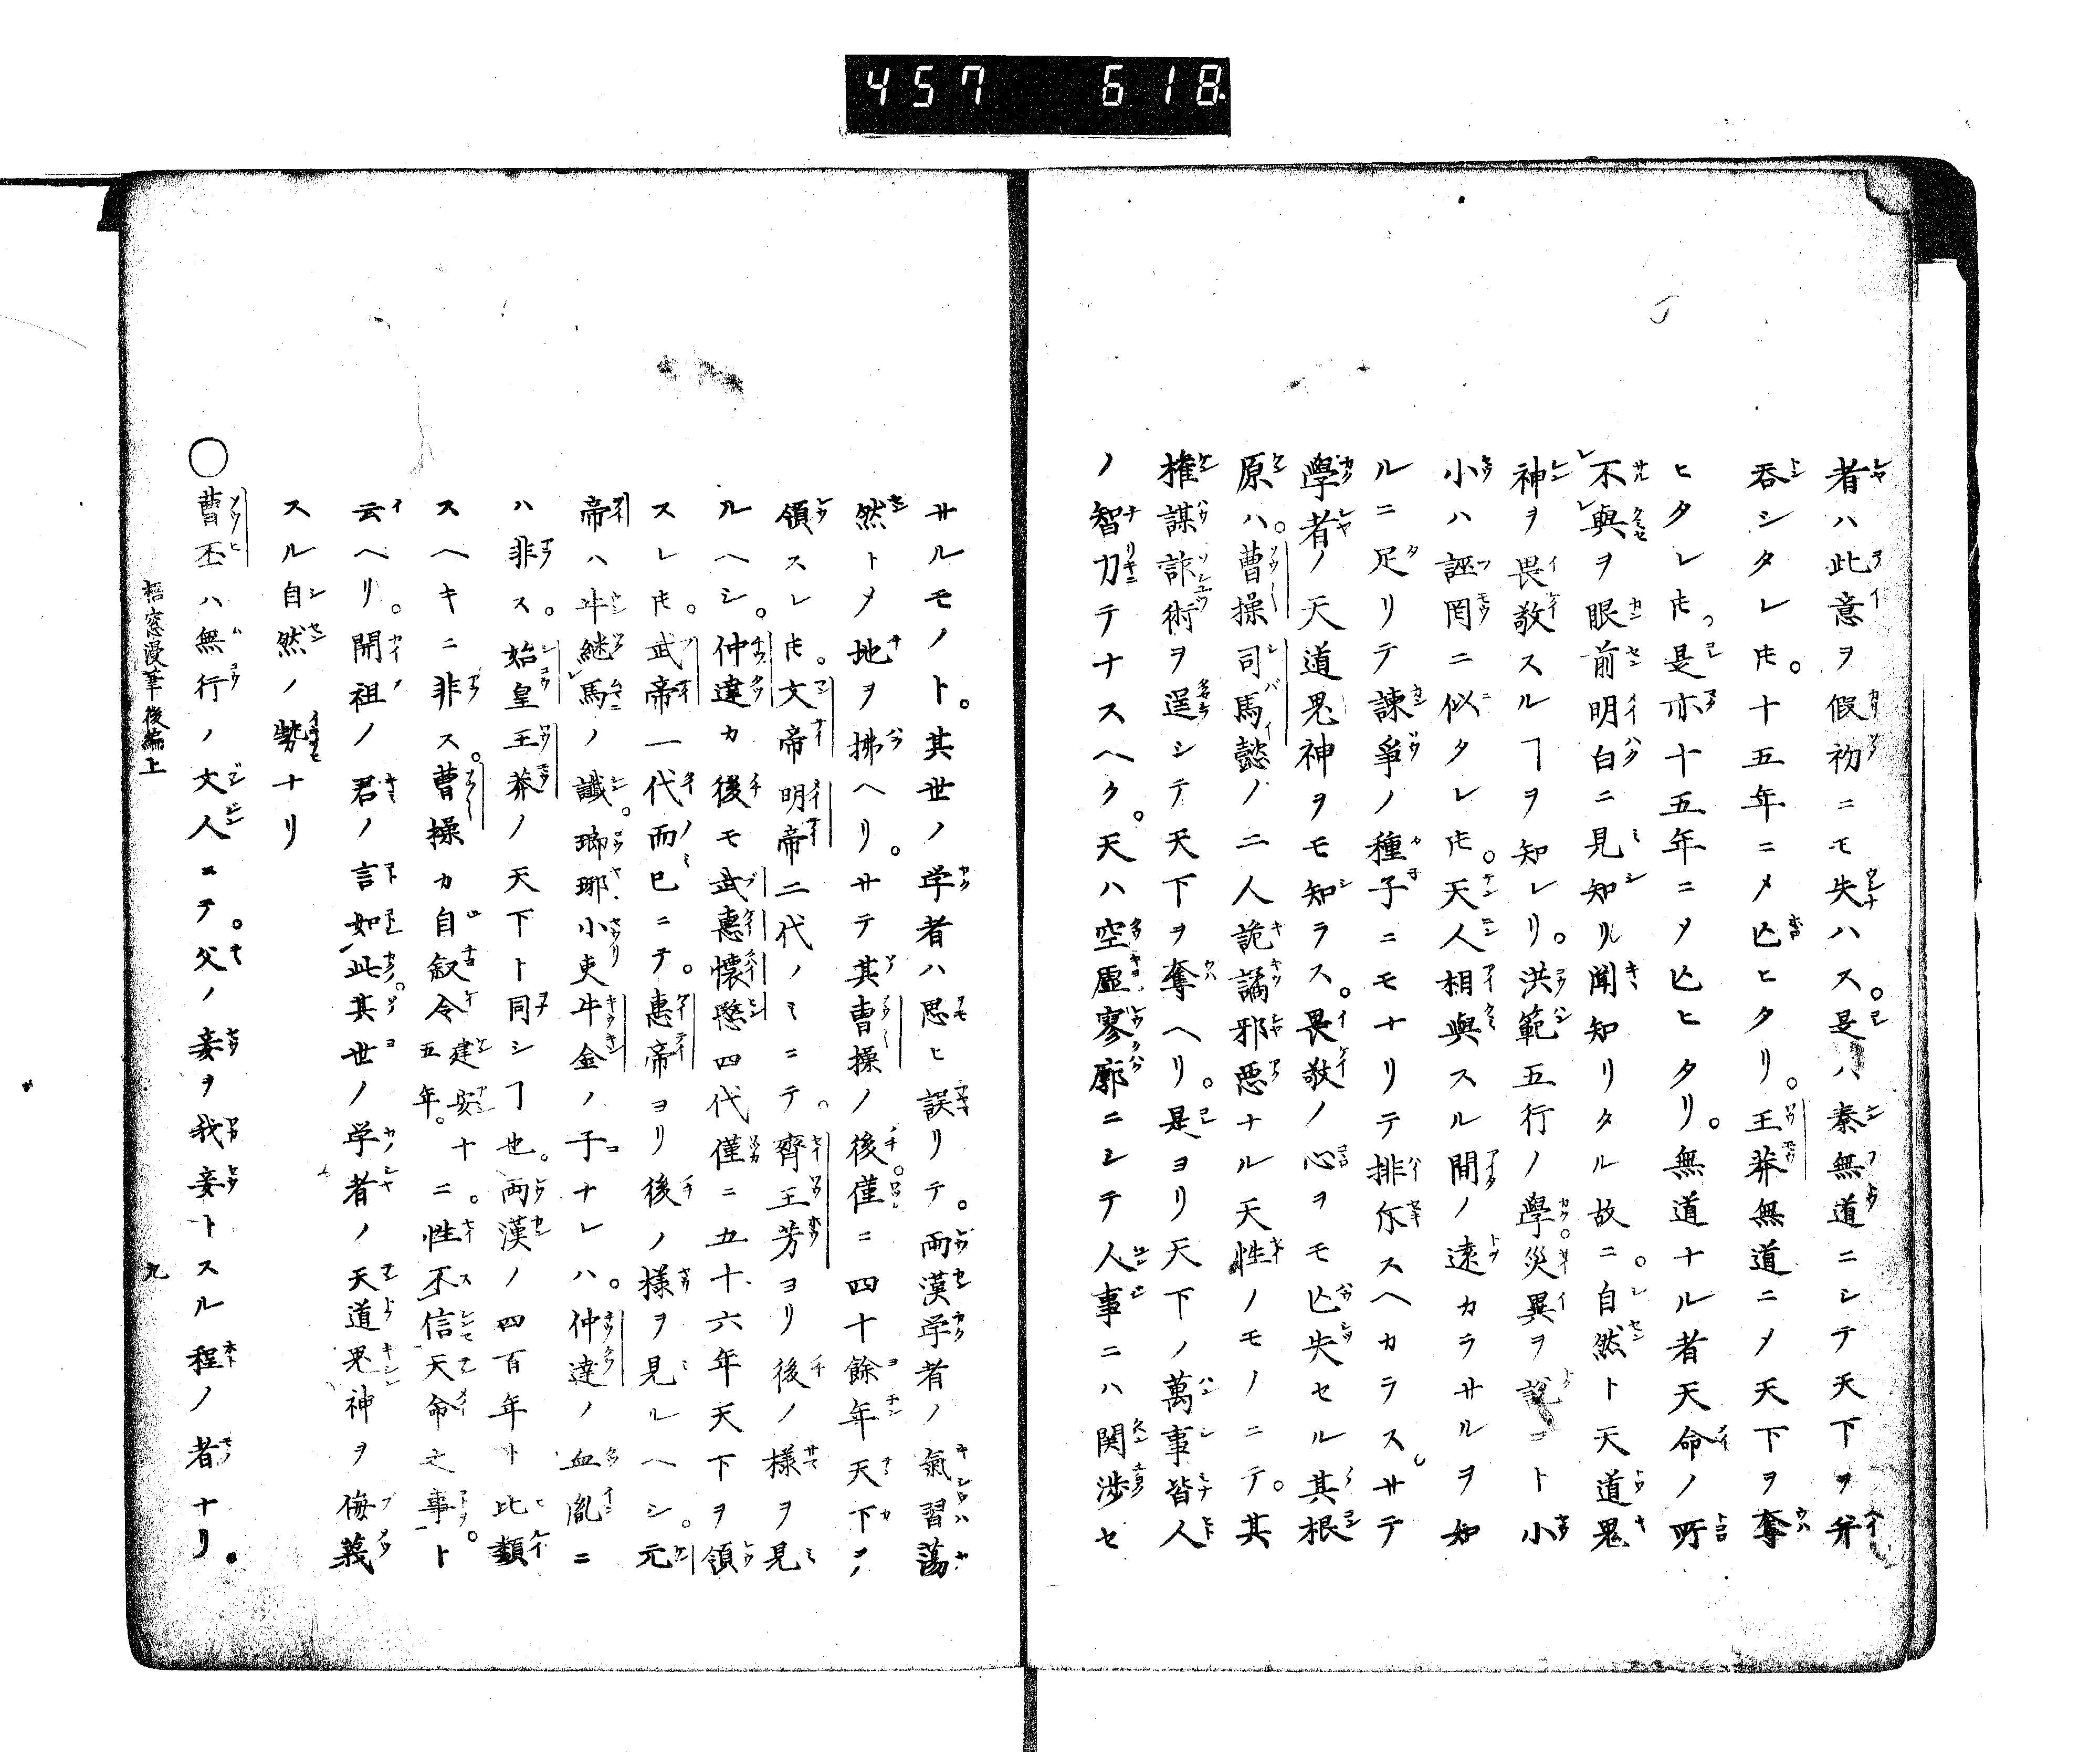 457 618.
者ハ此意ヲ假初ニモ失ハス。是ハ秦無道ニシテ天下ヲ并
呑シタレ𪜈。十五年ニメ亡ヒタリ。王莽無道ニメ天下ヲ奪
ヒタレ𪜈。是亦十五年ニメ亡ヒタリ。無道ナル者天命ノ所
不與ヲ眼前明白ニ見知リ聞知リタル故ニ。自然ト天道鬼
神ヲ畏敬スルヿヲ知レリ。洪範五行ノ學。災異ヲ説コト小
小ハ誣罔ニ似タレ𪜈。天人相與スル間ノ遠カラサルヲ知
ルニ足リテ諫爭ノ種子ニモナリテ排斥スヘカラス。サテ
學者ノ天道鬼神ヲモ知ラス。畏敬ノ心ヲモ亡失セル其根
原ハ。曹操司馬懿ノ二人詭譎邪惡ナル天性ノモノニテ。其
權謀詐術ヲ逞シテ天下ヲ奪ヘリ。是ヨリ天下ノ萬事皆人
ノ智力テナスヘク。天ハ空虛寥廓ニシテ人事ニハ関渉セ
サルモノト。其世ノ学者ハ思ヒ誤リテ。両漢学者ノ氣習蕩
然トメ地ヲ拂ヘリ。サテ其曹操ノ後。僅ニ四十餘年天下ヲ
領スレ𪜈。文帝明帝二代ノミニテ。齊王芳ヨリ後ノ様ヲ見
ルヘシ。仲達カ後モ武惠懷愍四代僅ニ五十六年天下ヲ領
スレ𪜈。武帝一代而已ニテ。惠帝ヨリ後ノ様ヲ見ルヘシ。元
帝ハ牛継馬ノ讖。瑯琊小吏牛金ノ子ナレハ。仲達ノ血胤ニ
ハ非ス。始皇王莽ノ天下ト同シヿ也。両漢ノ四百年ト比類
スヘキニ非ス。曹操カ自叙令建安十五年。ニ。性不信天命之事。ト
云ヘリ。開祖ノ君ノ言如此。其世ノ学者ノ天道鬼神ヲ侮蔑
スル自然ノ勢ナリ
○曹丕ハ無行ノ文人ニテ。父ノ妾ヲ我妾トスル程ノ者ナリ。
梧窓漫筆後編上
九